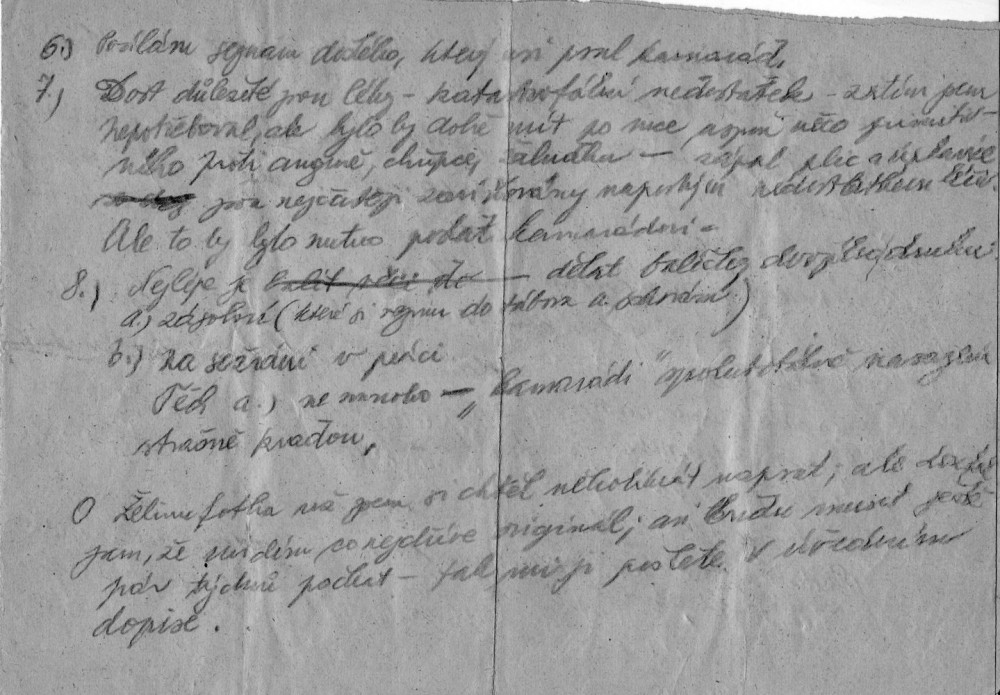 6.) Posílám seznam došlého, který psal kamarád.
7.) Dost důležité jsou léky - katastrofální nedostatek - zatím jsem
nepotřeboval, ale bylo by dobré mít po ruce aspoň něco primitiv-
ního proti angině, chřipce, žaludku — zápal plic a
jsou nejčastěji naprostým nedostatkem
Ale to by bylo nutno podat kamarádovi -
8.) Nejlépe je balit věci do — dělat balíčky dvojího druhu
a.) zásobní (které si vezmu do tábora a schovám)
b.) na sežrání v práci
Těch a.) ne mnoho — „kamarádi"
strašně kradou.
O fotka vás jsem si chtěl několikrát napsat, ale doufal
jsem, že uvidím co nejdříve originál; asi budu muset ještě
pár týdnů počkat - tak mi ji pošlete v úředním
dopise.